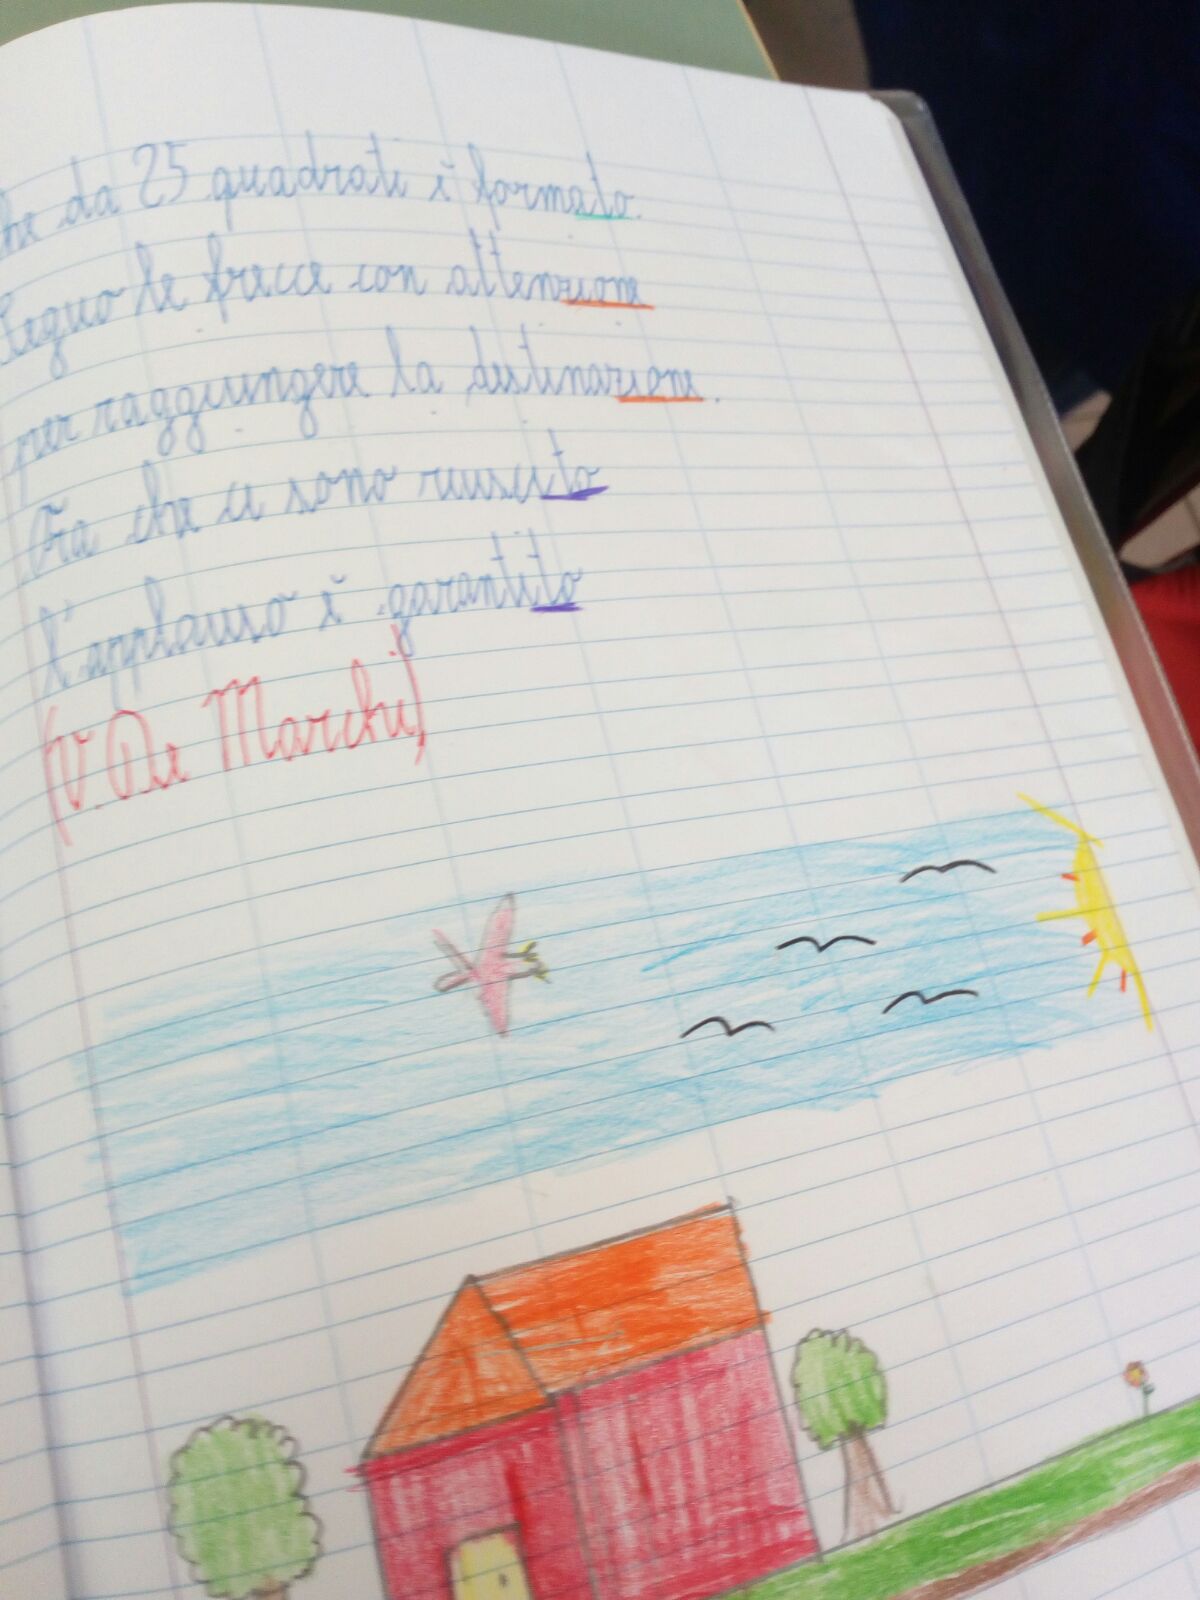 che da 25 quadrati è formato.
Seguo le frecce con attenzione
per raggiungere la destinazione.
Ora che ci sono riuscito
l'applauso è garantito
(V. De Marchi)